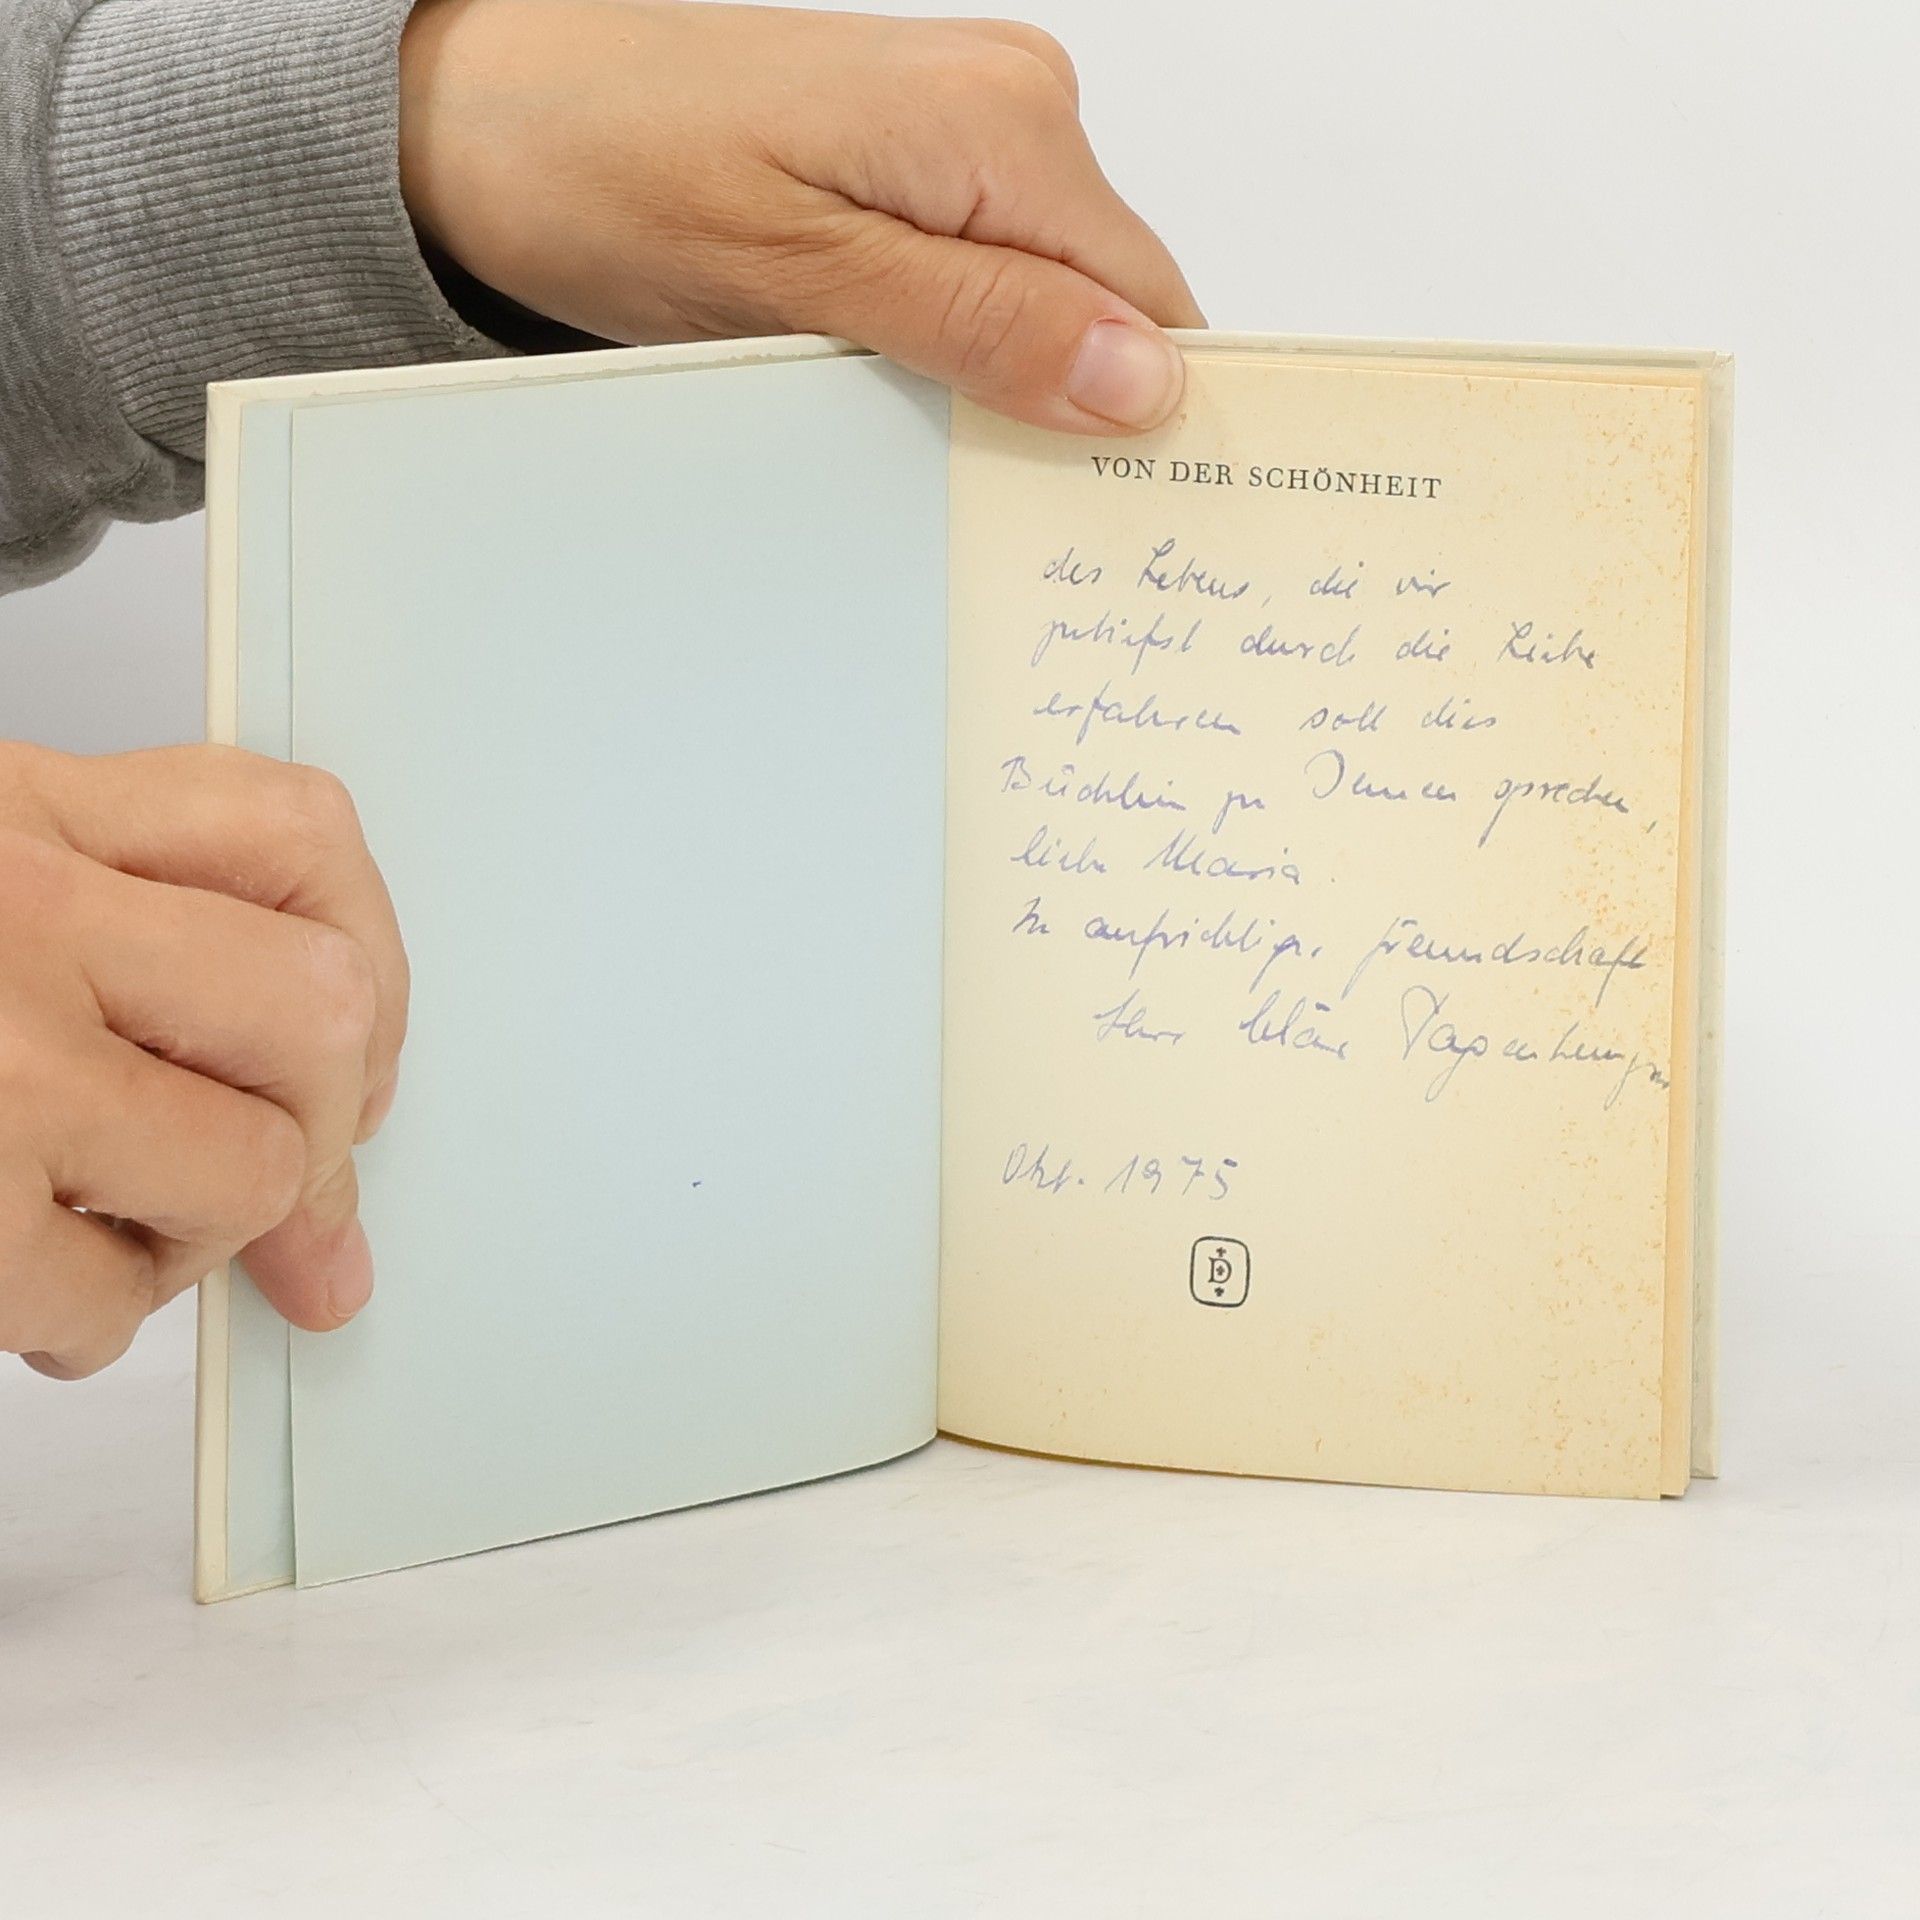 VON DER SCHÖNHEIT
des Lebens, die wir
zutiefst durch die Liebe
erfahren soll dies
Büchlein zu Ihnen sprechen,
liebe Maria.
In aufrichtiger Freundschaft
Ihre Kläre
Okt. 1975
D